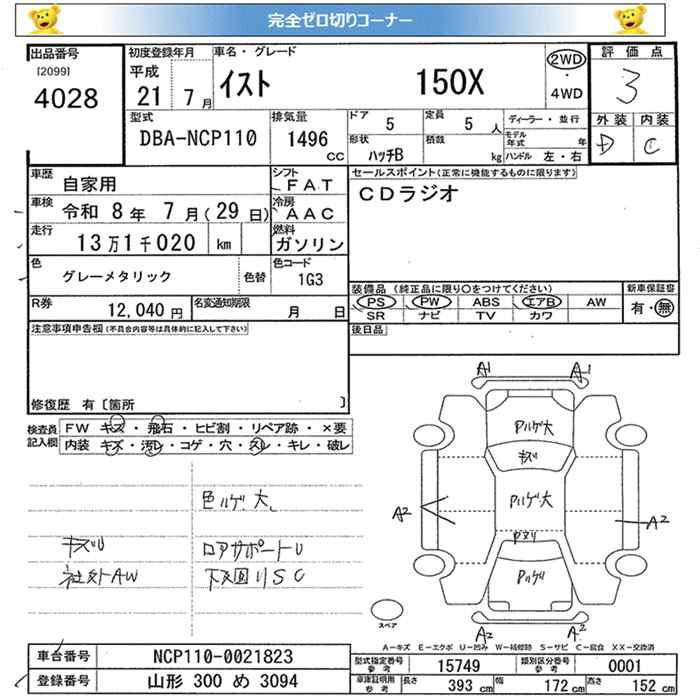 完全ゼロ切りコーナー
出品番号
[2099]
4028
初度登録年月
平成
21 7月
車名・グレード
イスト 150X
2WD
・
4WD
評価点
3
型式
DBA-NCP110
排気量
1496
cc
ドア 5
定員 5 人
ディーラー・並行
形状
ハッチB
積載 kg
モデル年式 年
ハンドル 左・右
外装 内装
D C
車歴 自家用
シフト FAT
車検 令和 8年 7月(29日)
冷房 AAC
走行 13万1千020 km
燃料 ガソリン
色 グレーメタリック 色替
色コード 1G3
R券 12,040円
名変通知期限 月 日
セールスポイント(正常に機能するものに限ります)
CDラジオ
装備品(純正品に限り○をつけてください) 新車保証書
PS PW ABS エアB AW 有・無
SR ナビ TV カワ
後日品
注意事項申告欄(不具合内容等は具体的に記入して下さい)
修復歴 有[箇所 ]
検査員記入欄
FW キズ・飛石・ヒビ割・リペア跡・×要
内装 キズ・汚レ・コゲ・穴・スレ・キレ・破レ
色ハゲ大
キズU ロアサポートU
社外AW 下反回りSC
A1 A1
Pハゲ大
キズ
A2 Pハゲ大 A2
Pヌリ
Pハゲ
A2 A2
スペア
A-キズ E-エクボ U-凹み W-補修跡 S-サビ C-腐食 XX-交換済
車台番号 NCP110-0021823
登録番号 山形 300 め 3094
型式指定番号 参考 15749 類別区分番号 参考 0001
車庫証明用 参考 長さ 393 cm 幅 172 cm 高さ 152 cm